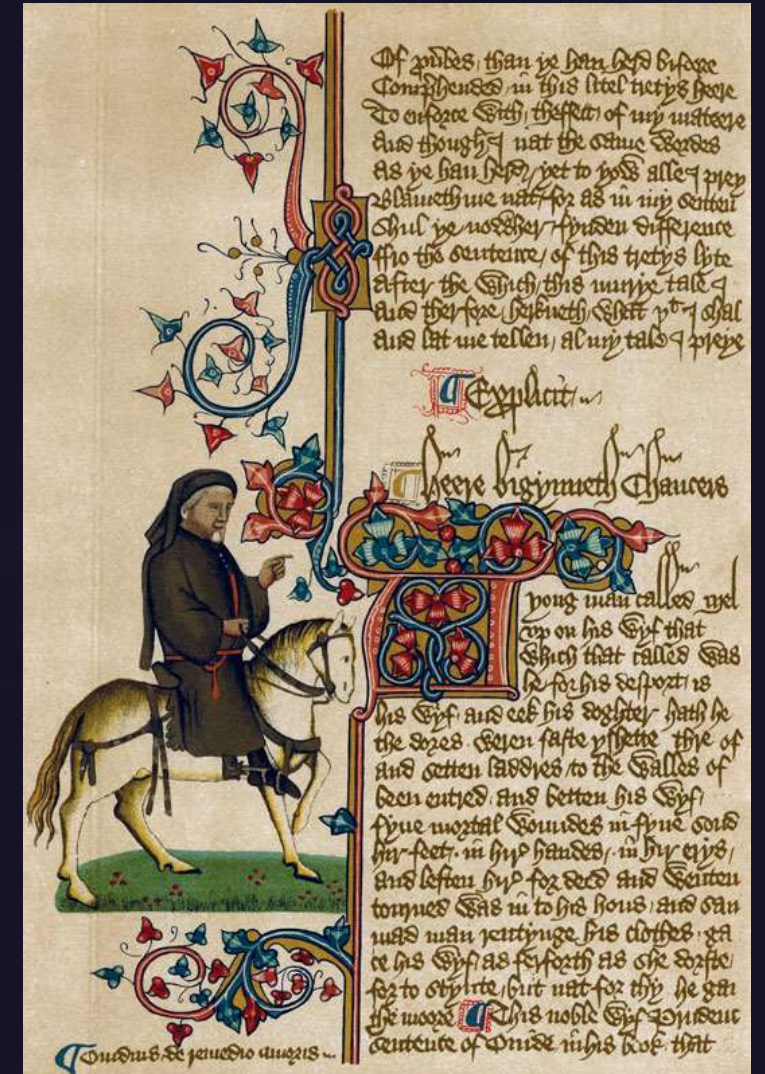 Of prou̅bes, than ye han herd bifore
Comprehended, in this litel tretys heere
To enforce with, theffect of my mateere
And though I nat the same wordes
as ye han herd, yet to yow alle I prey
Blameth me nat, for as in my senten
Shul ye nowher fynden difference
ffro the sentence, of this tretys lyte
after the which, this murye tale I
and therfore herkneth, what þt I shal
and lat me tellen, al my tale I preye
Explicit
heere bigynneth Chaucers
yong man called Mel
vp on his wyf that
which that called was
he for his desport, is
his wyf, and eek his doghter hath he
the dores weren faste yshette thre of
and setten laddres to the walles of
been entred, and betten his wyf,
fyue mortal woundes in fyue sond
hir feet, in hir handes, in hir erys,
and leften hir for deed and wenten
torned was in to his hous, and sau
mad man rentynge his clothes, ga
ce his wyf, as ferforth as she dorste,
for to stynte, but nat for thy he gan
the moore This noble wyf Prudenc
sentence of Ouide, in his book, that
Ouidius, de remedio amoris